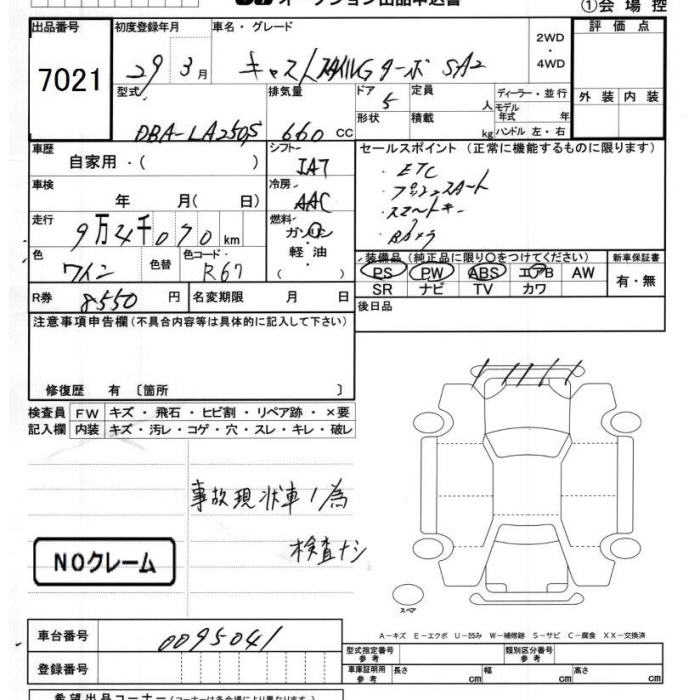 オークション出品申込書
①会場控
出品番号
7021
初度登録年月
29 3月
車名・グレード
キャストスタイルGターボ SA2
2WD
・
4WD
評価点
外装 内装
型式
DBA-LA250S
排気量
660 CC
ドア
5
形状
定員
人
積載
kg
ディーラー・並行
モデル年式 年
ハンドル 左・右
車歴
自家用・( )
シフト
IAT
セールスポイント (正常に機能するものに限ります)
・ETC
・プッシュスタート
・スマートキー
・Bカメラ
車検
年 月( 日)
冷房
AAC
走行
9万4千070km
燃料
ガソリン
軽・油
( )
色
ワイン
色替
色コード
R67
装備品 (純正品に限り〇をつけてください)
PS PW ABS エアB AW
SR ナビ TV カワ
新車保証書
有・無
R券
8550 円
名変期限 月 日
後日品
注意事項申告欄(不具合内容等は具体的に記入して下さい)
修復歴 有 〔箇所 〕
検査員
記入欄
FW キズ・飛石・ヒビ割・リペア跡・×要
内装 キズ・汚レ・コゲ・穴・スレ・キレ・破レ
事故現状車ノ為
検査ナシ
NOクレーム
スペア
A-キズ E-エクボ U-凹み W-補修跡 S-サビ C-腐食 XX-交換済
車台番号
0095041
登録番号
型式指定番号
参考
類別区分番号
参考
車庫証明用
参考
長さ cm 幅 cm 高さ cm
希望出品コーナー(コーナーは各会場により異なります)